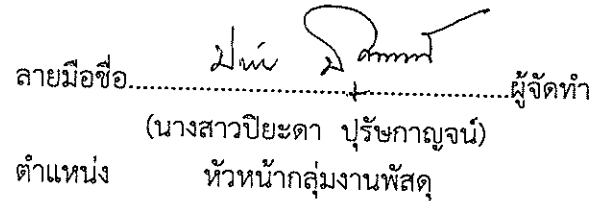 ลายมือชื่อ..............................................ผู้จัดทำ
(นางสาวปิยะดา ปุรัษกาญจน์)
ตำแหน่ง หัวหน้ากลุ่มงานพัสดุ